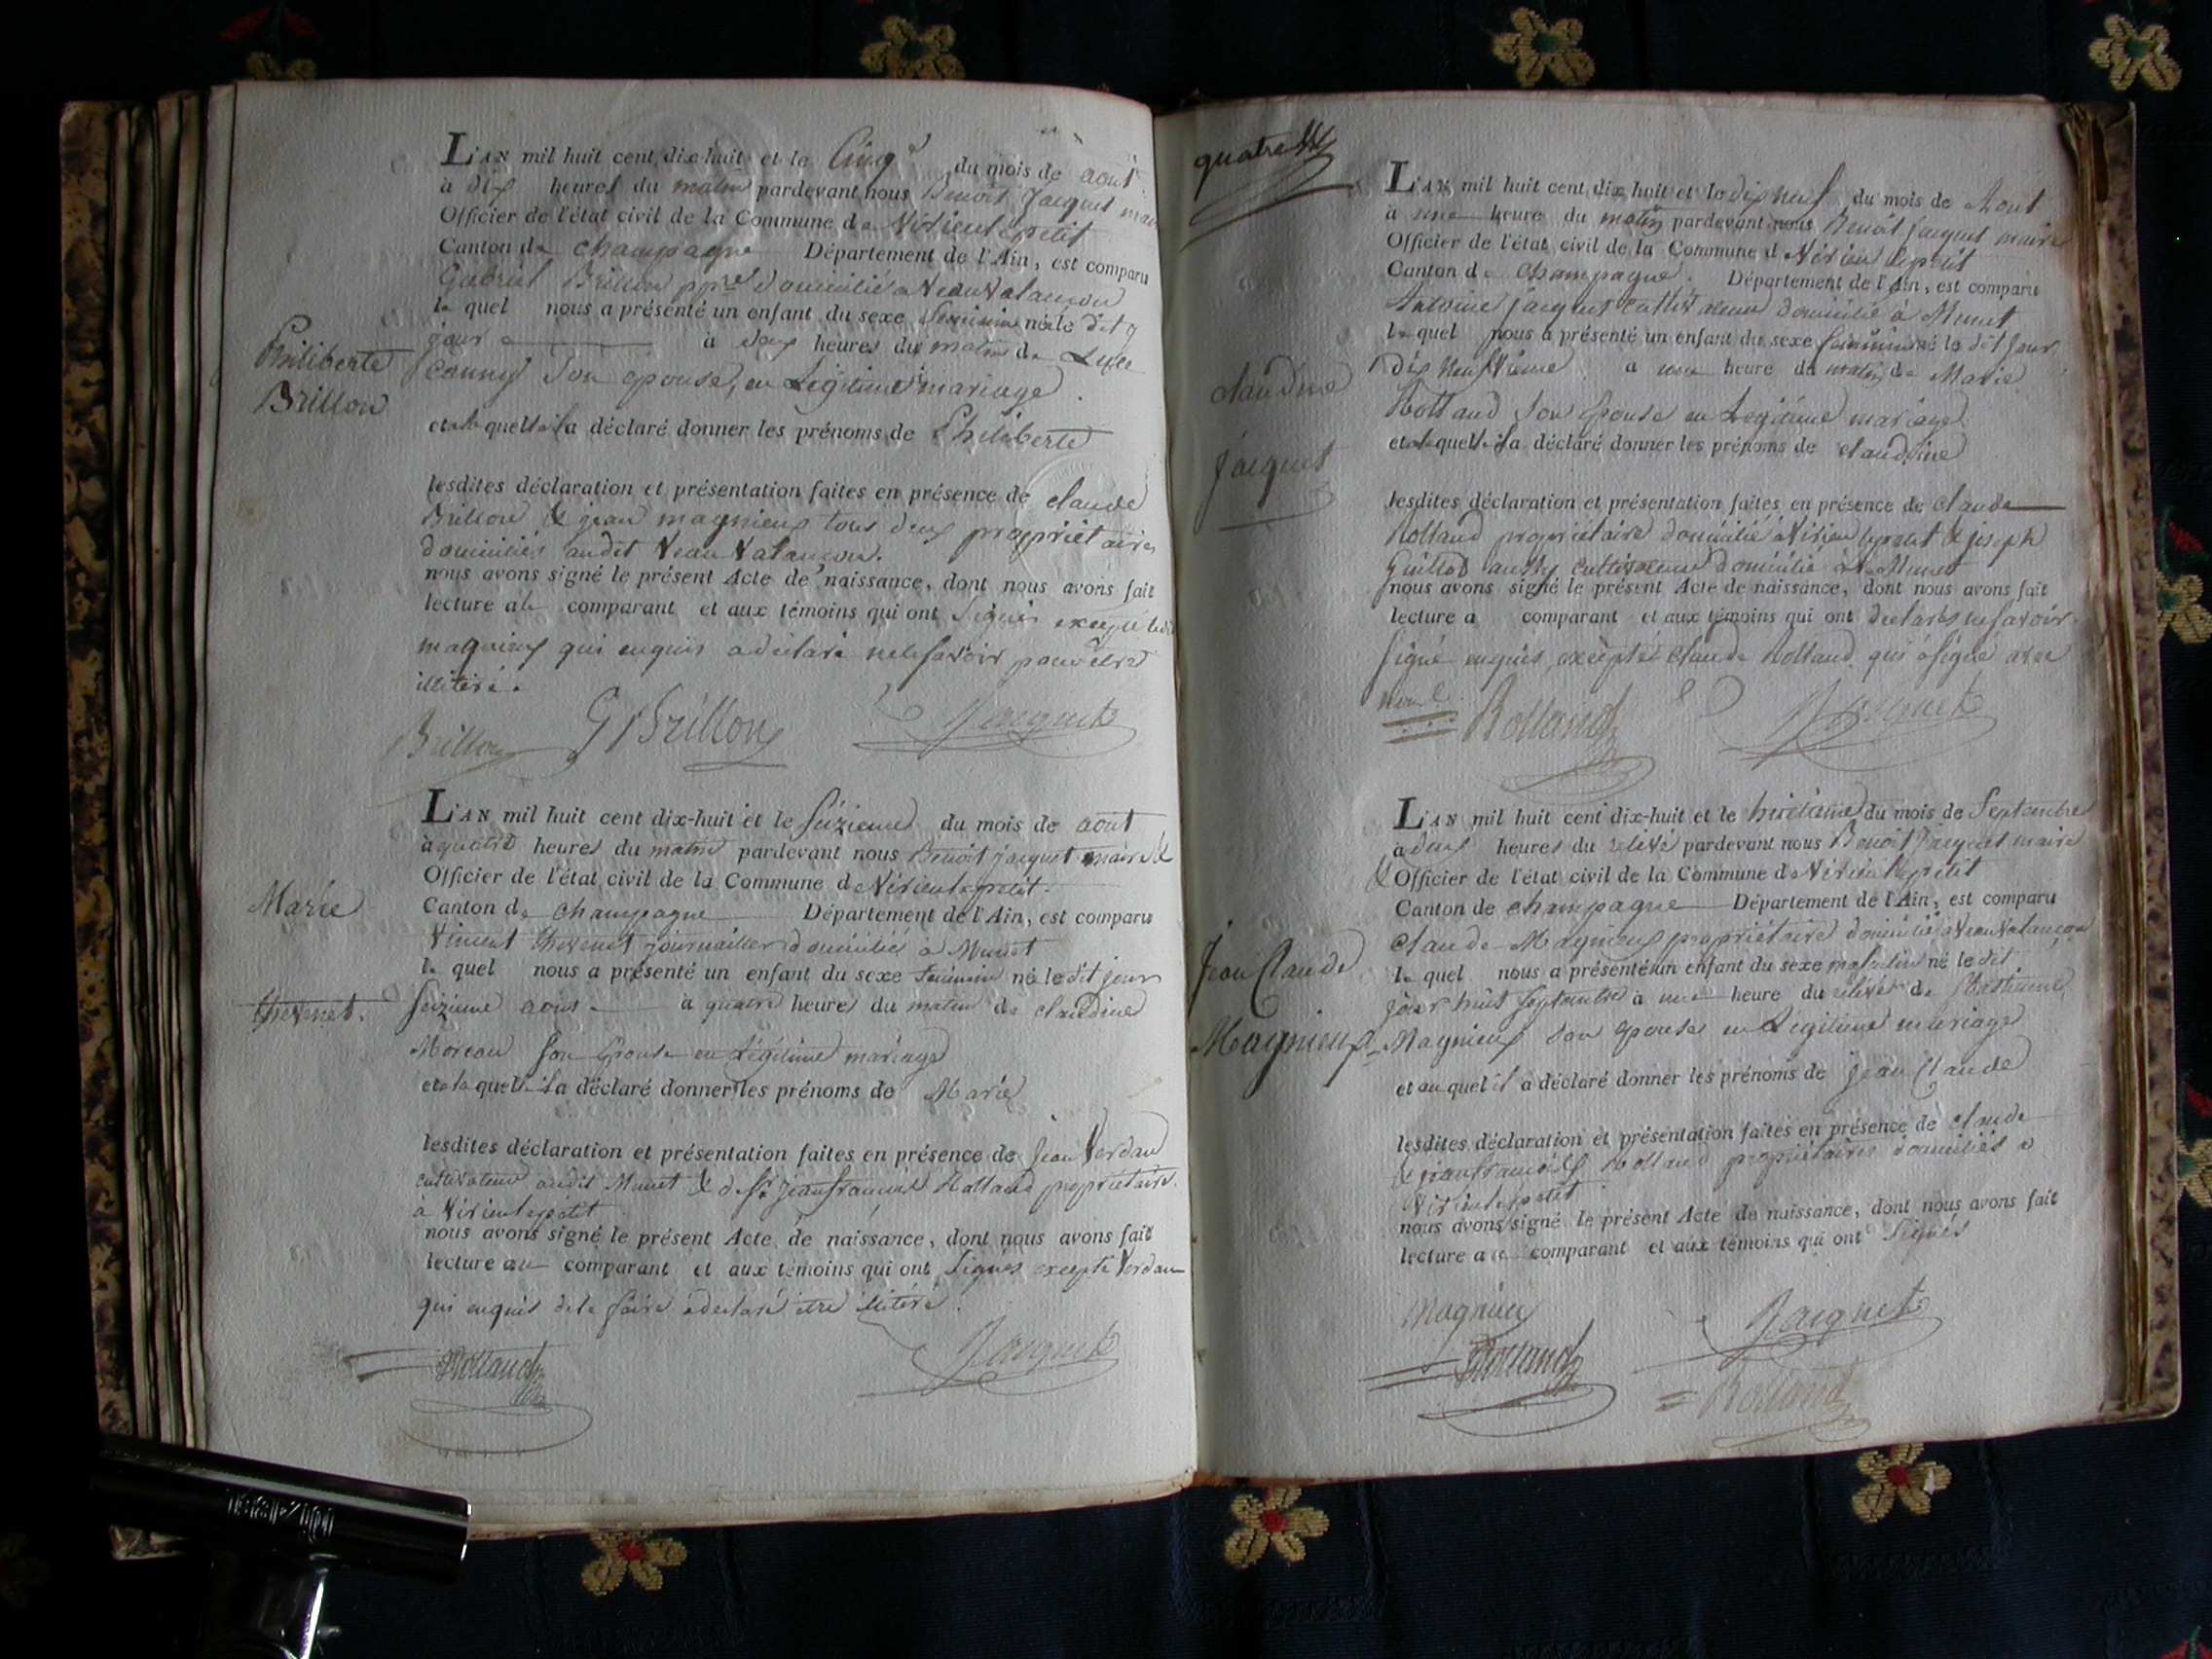 Philiberte
Brillon
L'AN mil huit cent dix-huit et le Cinq du mois de aout
à dix heures du matin pardevant nous Benoit Jacquet
Officier de l'état civil de la Commune de Virieu le petit
Canton de Champagne Département de l'Ain, est comparu
Gabriel Brillon domicilié a
le quel nous a présenté un enfant du sexe feminin né le dit
jour à deux heures du matin de
son epouse, en Legitime mariage
et a la quelle il a déclaré donner les prénoms de Philiberte
lesdites déclaration et présentation faites en présence de claude
Brillon & jean magnieux tous deux propriétaires
domiciliés audit
nous avons signé le présent Acte de naissance, dont nous avons fait
lecture au comparant et aux témoins qui ont signés excepté
magnieux qui enquis a déclaré ne le savoir pour être
illiteré.
Brillon G Brillon Jacquet
Marie
thevenet.
L'AN mil huit cent dix-huit et le seizieme du mois de aout
à quatre heures du matin pardevant nous Benoit jacquet maire &
Officier de l'état civil de la Commune de Virieu le petit
Canton de Champagne Département de l'Ain, est comparu
Vincent thevenet journailler domicilié a Munet
le quel nous a présenté un enfant du sexe feminin né le dit jour
seizieme aout à quatre heures du matin de claudine
Moreau son Epouse en Légitime mariage
et a la quelle il a déclaré donner les prénoms de Marie
lesdites déclaration et présentation faites en présence de jean Verdau
cultivateur audit Munet & de Sr jean françois Rolland propriétaire
à Virieu le petit
nous avons signé le présent Acte de naissance, dont nous avons fait
lecture au comparant et aux témoins qui ont signés excepté Verdau
qui enquis de le faire a declaré etre illiteré.
Rolland Jacquet
quatre
claudine
jacquet
L'AN mil huit cent dix huit et le dix neuf du mois de Aout
à une heure du matin pardevant nous Benoit jacquet maire
Officier de l'état civil de la Commune de Virieu le petit
Canton de Champagne. Département de l'Ain, est comparu
Antoine jacquet cultivateur domicilié à Munet
le quel nous a présenté un enfant du sexe feminin né le dit jour
Dix Neuvieme à une heure du matin de Marie
Rolland son Epouse en Legitime mariage
et a la quelle il a déclaré donner les prénoms de claudine
lesdites déclaration et présentation faites en présence de claude
Rolland propriétaire domicilié à Virieu le petit & joseph
Guillot aussi cultivateur domicilié à Munet
nous avons signé le présent Acte de naissance, dont nous avons fait
lecture a comparant et aux témoins qui ont declarés ne savoir
signé enquis, excepté claude Rolland qui a signé avec
nous
Rolland Jacquet
Jean Claude
Magnieux
L'AN mil huit cent dix-huit et le huitieme du mois de Septembre
à deux heures du relevé pardevant nous Benoit Jacquet maire
& Officier de l'état civil de la Commune de Virieu le petit
Canton de champagne Département de l'Ain, est comparu
claude Magnieux propriétaire domicilié a
le quel nous a présenté un enfant du sexe masculin né le dit
jour huit septembre à une heure du relevée de
Magnieux son epouse en Legitime mariage
et au quel il a déclaré donner les prénoms de jean Claude
lesdites déclaration et présentation faites en présence de claude
& jean françois Rolland propriétaires domiciliés a
Virieu le petit
nous avons signé le présent Acte de naissance, dont nous avons fait
lecture a comparant et aux témoins qui ont signés
Magnieux
Jacquet
Rolland
Rolland